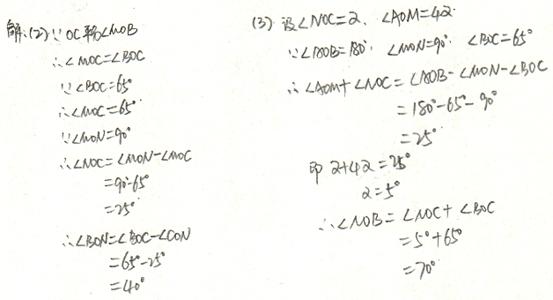 解:(2)∵OC平分∠MOB
∴∠MOC=∠BOC
∵∠BOC=65°
∴∠MOC=65°
∵∠MON=90°
∴∠NOC=∠MON-∠MOC
=90°-65°
=25°
∴∠BON=∠BOC-∠CON
=65°-25°
=40°
(3)设∠NOC=2、∠AOM=42
∵∠AOB=180°、∠MON=90°、∠BOC=65°
∴∠AOM+∠NOC=∠AOB-∠MON-∠BOC
=180°-65°-90°
=25°
即2+42=25°
2=5°
∴∠NOB=∠NOC+∠BOC
=5°+65°
=70°